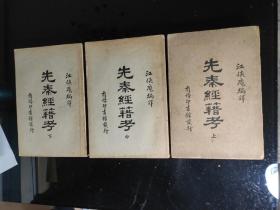 江俠庵編譯
先秦經籍考
上
商務印書館發行
江俠庵編譯
先秦經籍考
中
商務印書館發行
江俠庵編譯
先秦經籍考
下
商務印書館發行